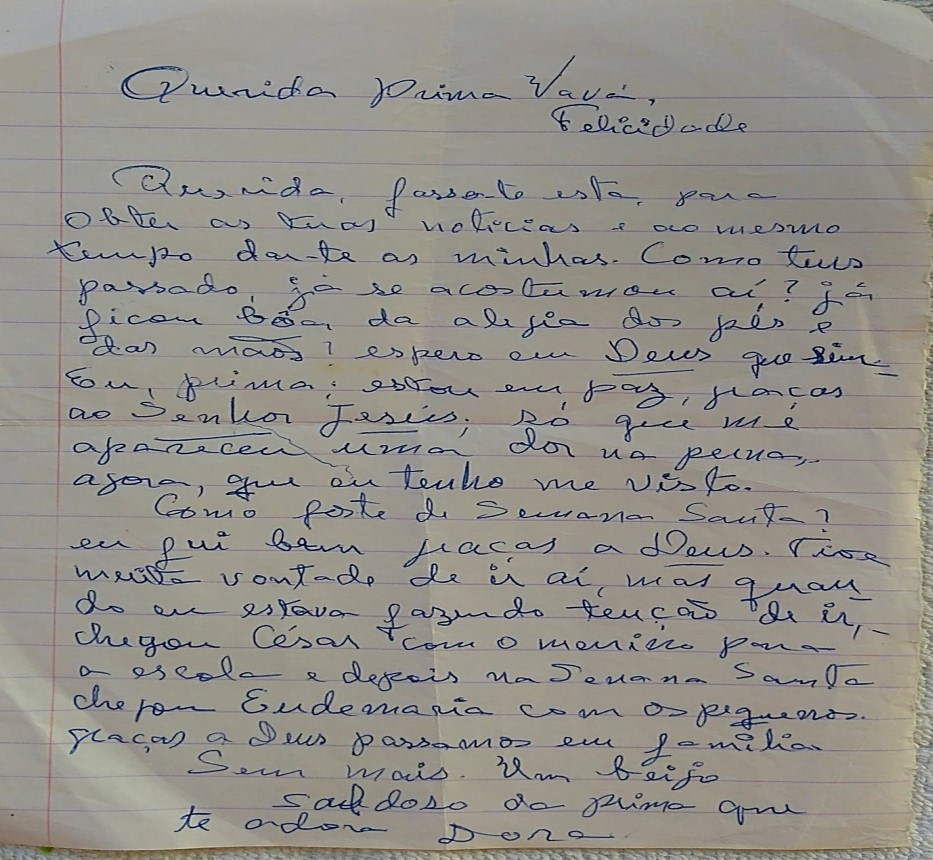 Querida prima Vavá,
Felicidade
Querida, passo-te esta, para
obter as tuas noticias e ao mesmo
tempo dar-te as minhas. Como tens
passado, já se acostumou aí? já
ficou bôa, da alegia dos pés e
das mãos? espero em Deus que sim.
Eu, prima; estou em paz, graças
ao Senhor Jesús; só que me
apareceu uma dor na perna,
agora, que eu tenho me visto.
Como foste de Semana Santa?
eu fui bem graças a Deus. Tive
muita vontade de ir aí, mas quan
do eu estava fazendo tenção de ir,
chegou César com o menino para
a escola e depois na Semana Santa
chegou Eudemaria com os pequenos.
graças a Deus passamos em família
Sem mais. Um beijo
saudoso da prima que
te adora Dora